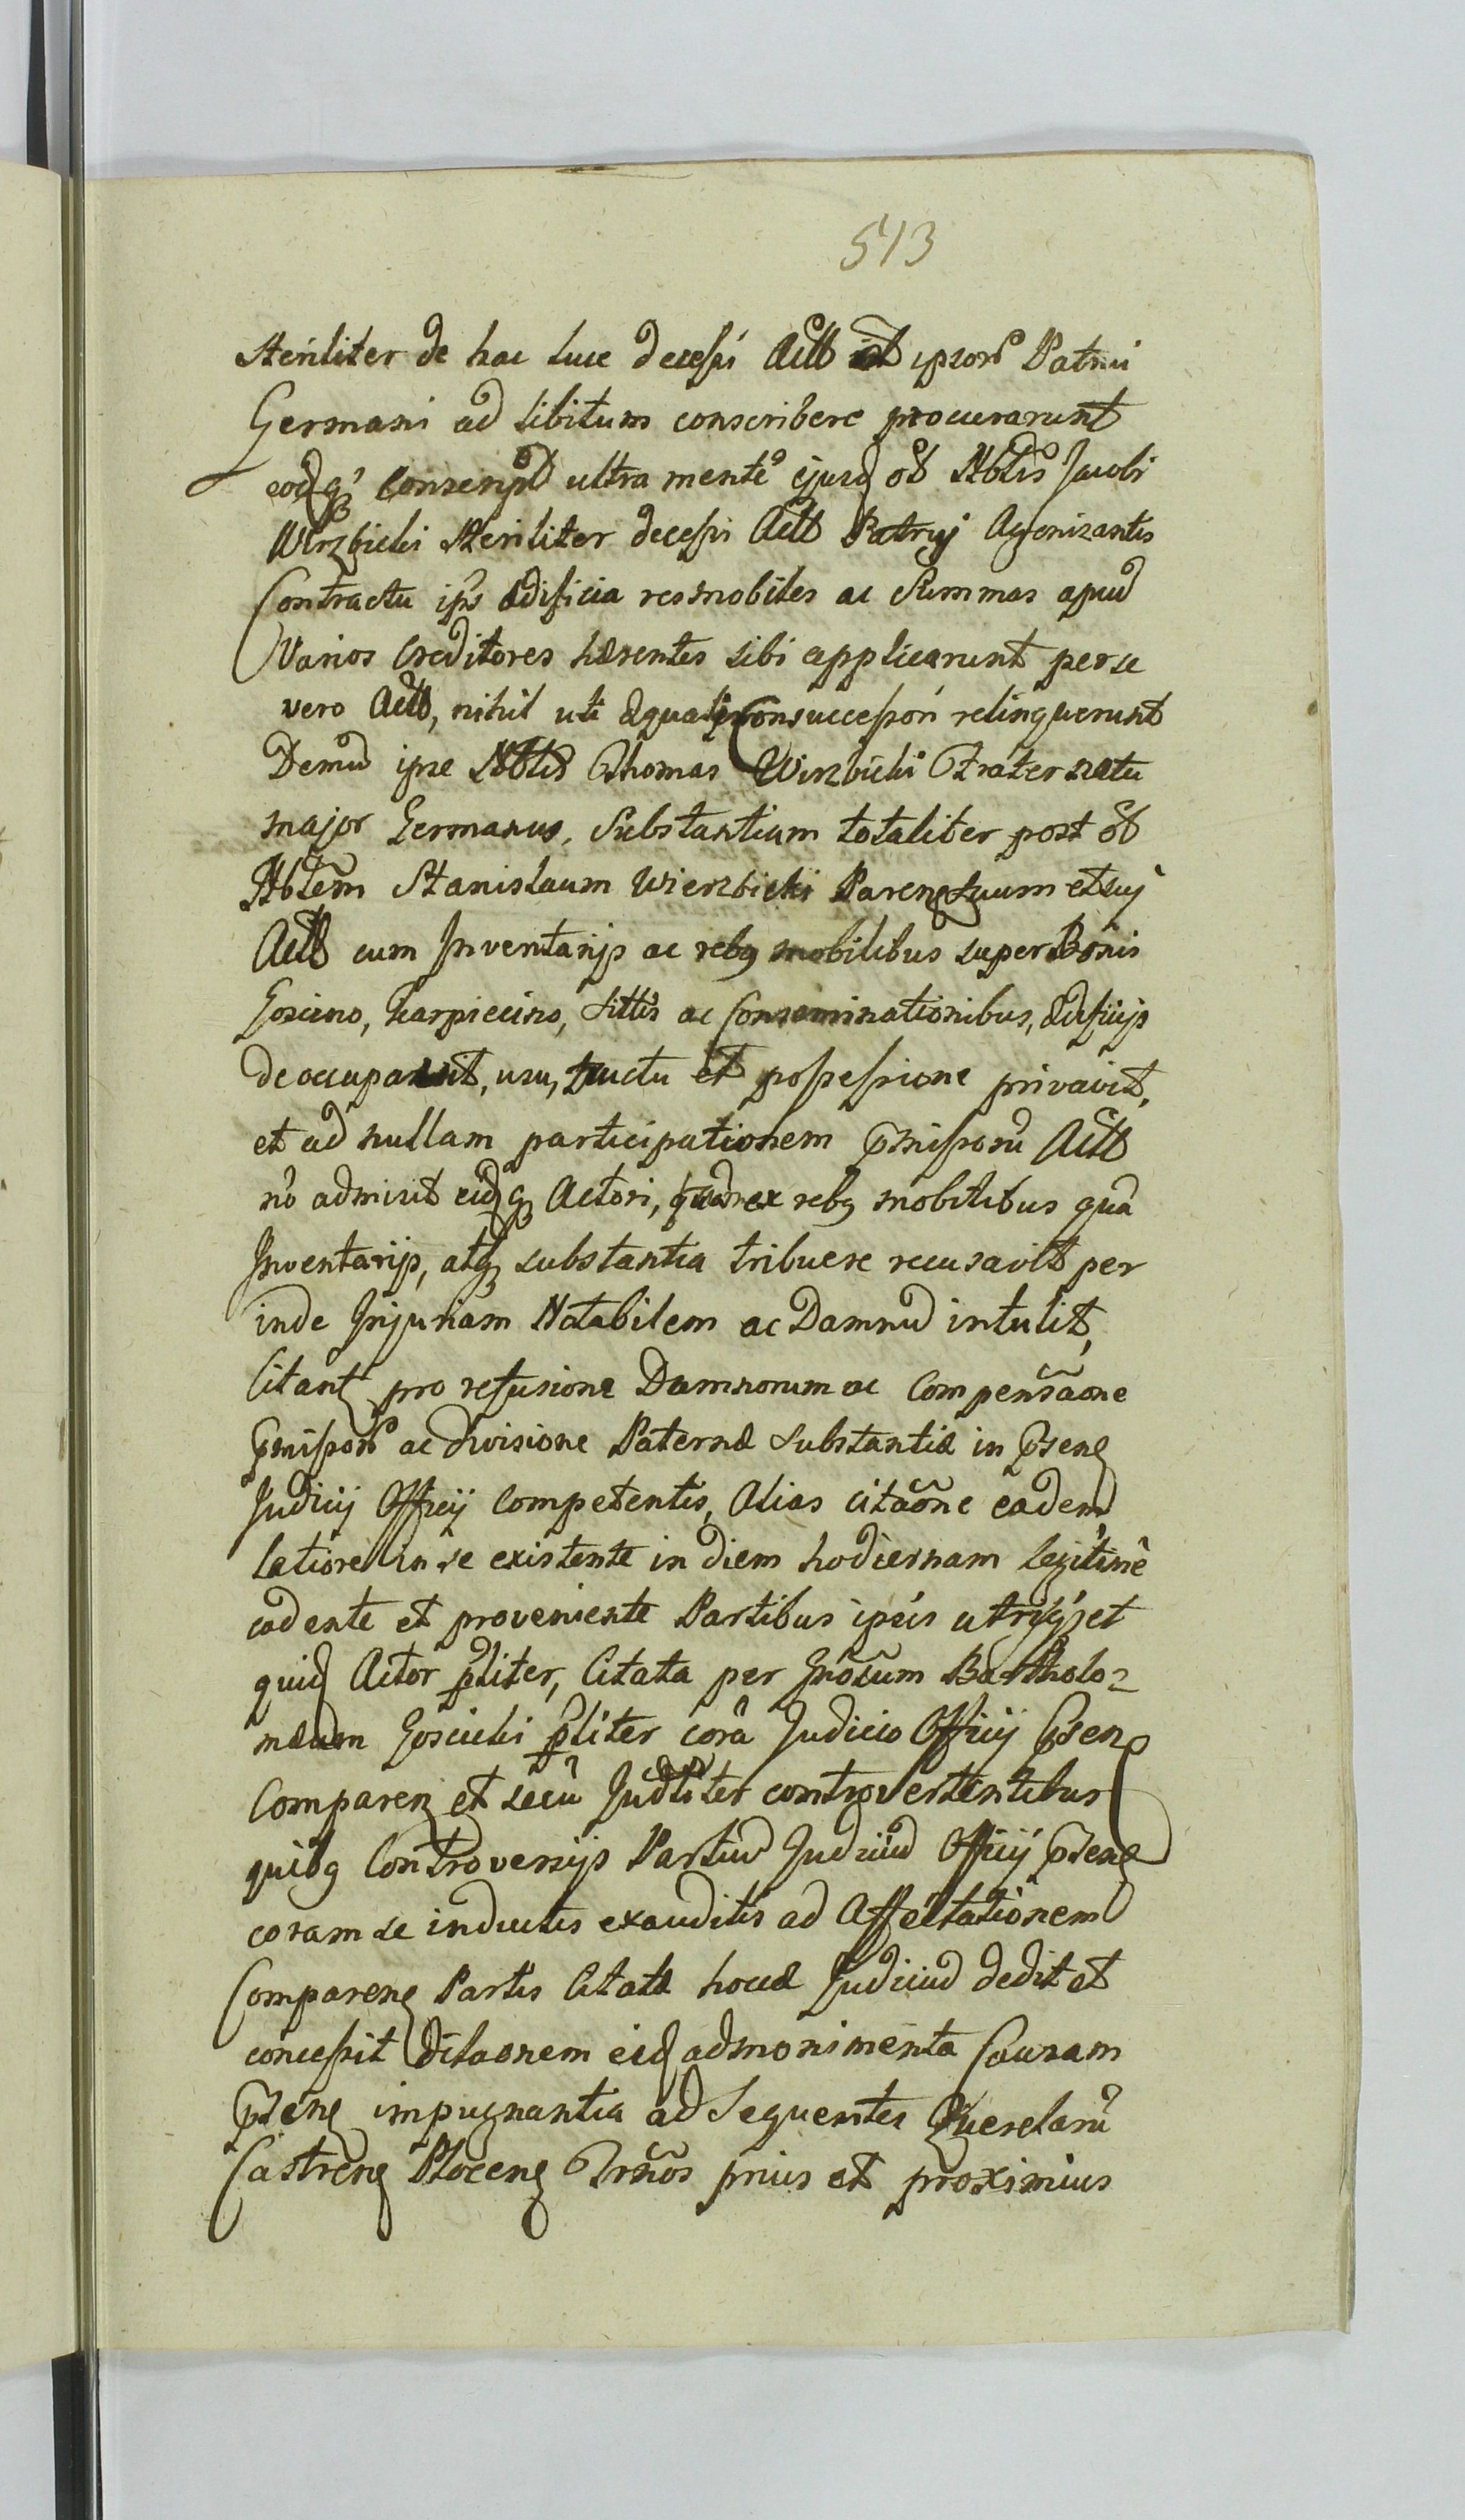 543
steriliter de hac luce decessi Actt et ipsor Patrui
Germani ad libitum conscribere procurarunt
eodq conscript ultra mente ejusd ol Nblis Jacobi
Wirzbicki steriliter decessi Actt Patruj Agonizantis
Contractu ips ædificia res mobiles ac Summas apud
Varios Creditores hærentes sibi applicarunt per se
vero Actt, nihil uti æquali Consuccessori relinquerunt
Demu ipse Nblis Thomas Wirzbicki Frater natu
major Germanus, Substantium totaliter post ol
Nblem Stanislaum Wierzbicki Paren suum et suj
Actt cum Inventarijs ac rebg mobilibus super Bonis
Gosiino, Karpiecino, sittis ac Conseminationibus, ædificijs
deoccupavit, usu, fructu et possessione privavit,
et ad nullam participationem pmissoru Actt
no admisit eidq Actori, ex rebg mobilibus qua
Inventarijs, atq substantia tribuere recusavit per
inde Injuriam Notabilem ac Damnu intulit,
Citant pro refusione Damnorum ac Compensaone
pmissor ac divisione Paternæ substantiæ in psen
Judicij Officij Competentis, Alias citaone eadem
latiore in se existente in diem hodiernam legitime
cadente et proveniente Partibus ipsis utrisq et
quid Actor pliter, Citata per Gnosum Bartholo=
mæum Gosicki pliter cora Judicio Officij psen
Comparen et secu Judliter controvertentibus
quibg Controversijs Partiu Judiciu Officij psen
coram se inductis exauditis ad Affectationem
Comparen Partis Citatæ hocce Judiciu dedit et
concessit dilaonem eid ad monimenta Causam
psen impugnantia ad Sequentes Querelaru
Castren Plocen Trnos prius et proximius